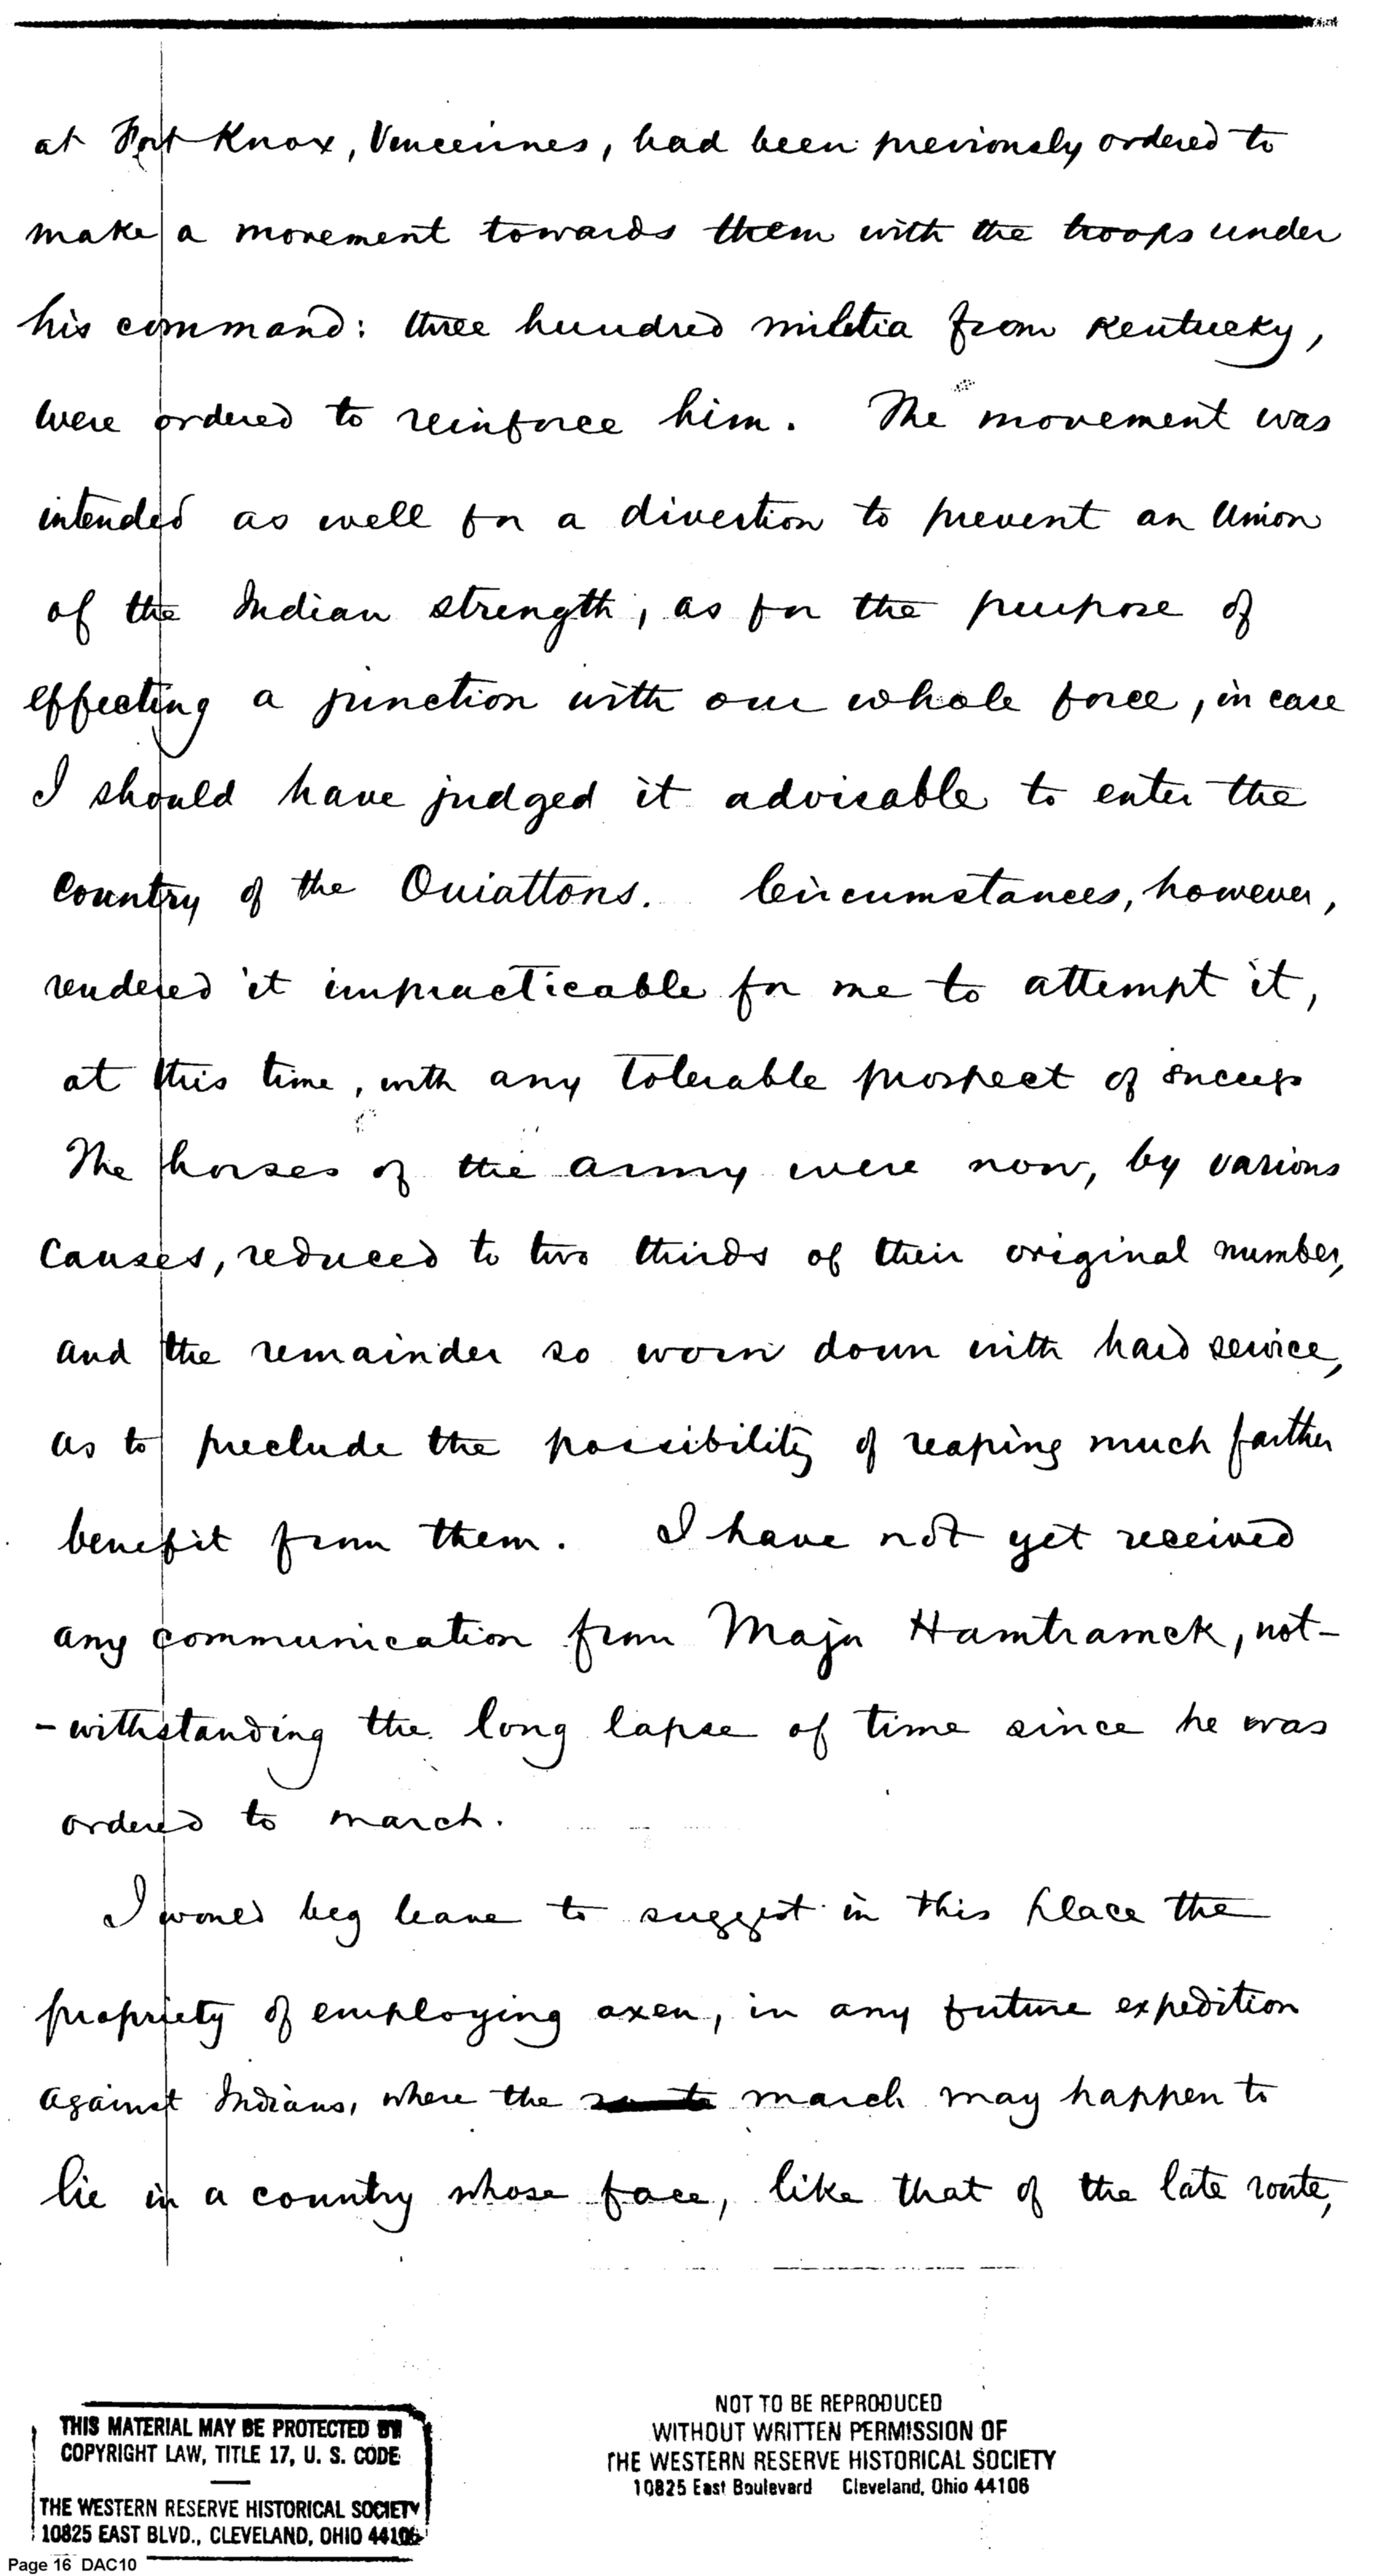 at Fort Knox, Vinceennes, had been previously ordered to
make a movement towards them with the troops under
his command: three hundred militia from Kentucky,
were ordered to reinforce him. The movement was
intended as well for a divertion to prevent an Union
of the Indian strength, as for the purpose of
effecting a junction with our whole force, in case
I should have judged it advisable to enter the
Country of the Ouiattons. Circumstances, however,
rendered it impracticable for me to attempt it,
at this time, with any tolerable prospect of success
The horses of the army were now, by various
causes, reduced to two thirds of their original number,
and the remainder so worn down with hard service,
as to preclude the possibility of reaping much farther
benefit from them. I have not yet received
any communication from Major Hamtramck, not-
-withstanding the long lapse of time since he was
ordered to march.
I would beg leave to suggest in this place the
propriety of employing oxen, in any future expedition
against Indians, where the march may happen to
lie in a country whose face, like that of the late route,
THIS MATERIAL MAY BE PROTECTED BY
COPYRIGHT LAW, TITLE 17, U. S. CODE
THE WESTERN RESERVE HISTORICAL SOCIETY
10825 EAST BLVD., CLEVELAND, OHIO 44106
NOT TO BE REPRODUCED
WITHOUT WRITTEN PERMISSION OF
THE WESTERN RESERVE HISTORICAL SOCIETY
10825 East Boulevard Cleveland, Ohio 44106
Page 16 DAC10